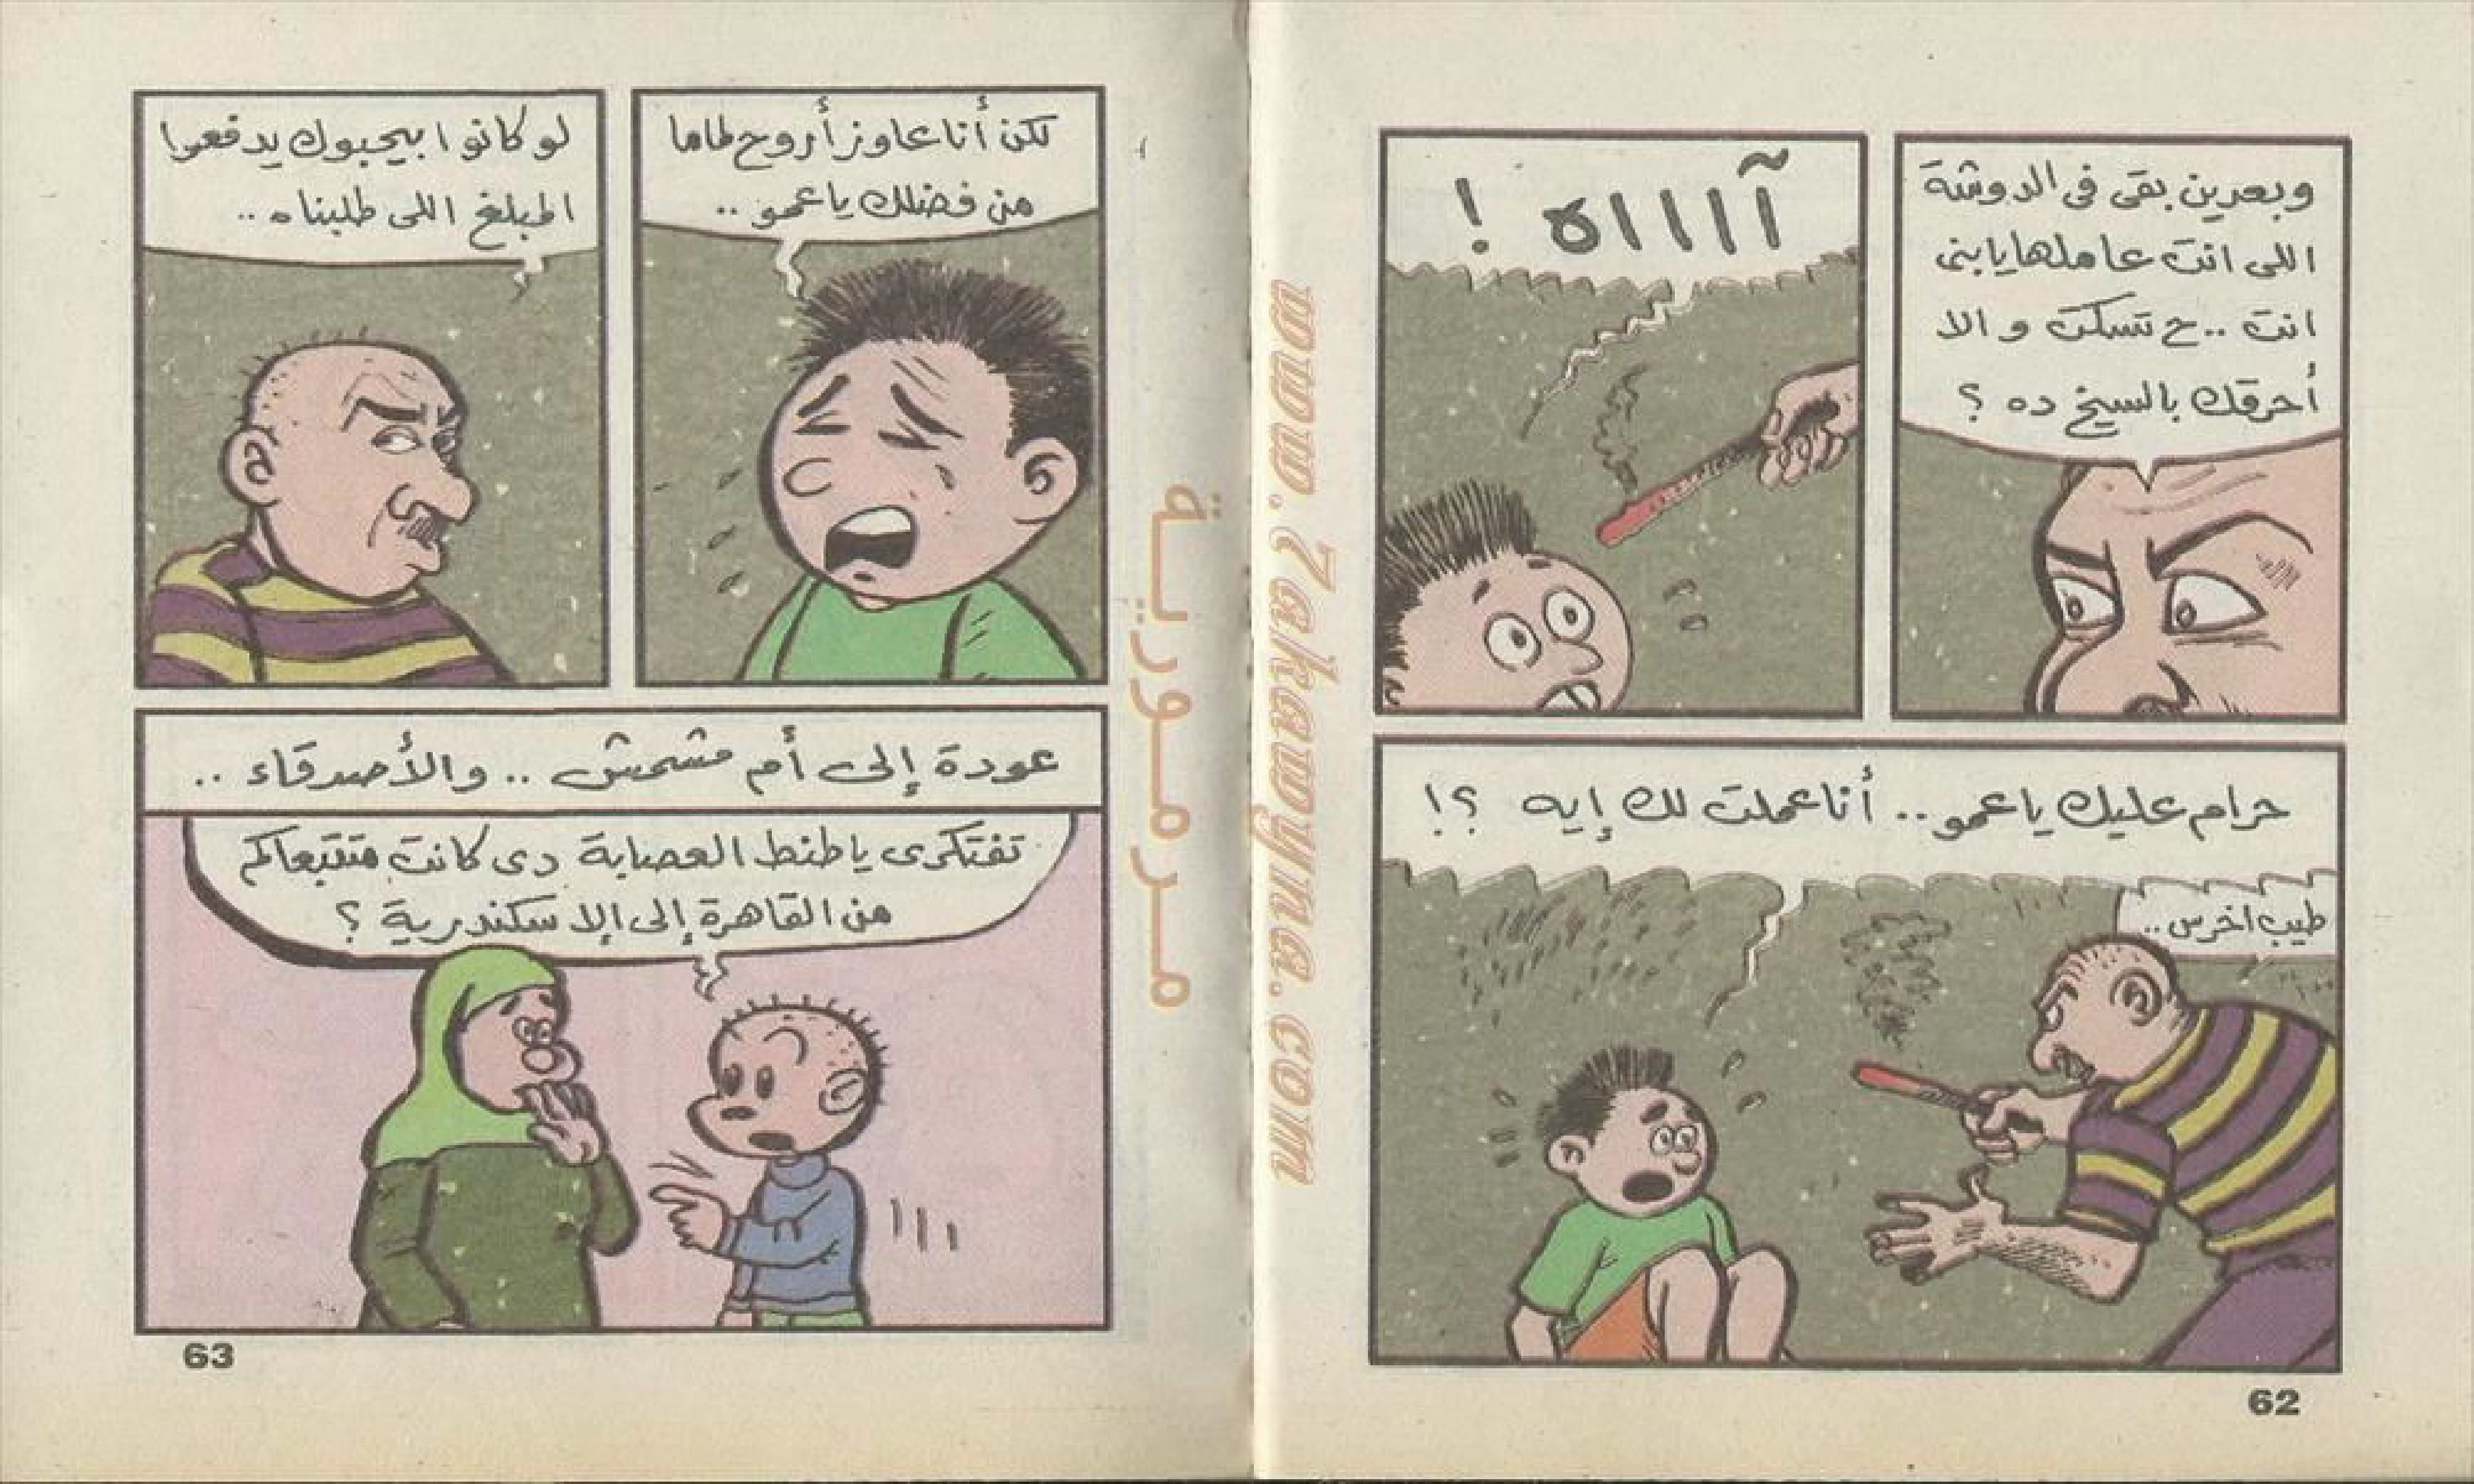 وبعدين بقى فى الدوشة
اللى انت عاملها يابنى
انت .. ح تسكت و الا
أحرقك بالسيخ ده ؟
آاااااه !
حرام عليك ياعمو .. أنا عملت لك إيه ؟!
طيب اخرس ..
62
www.7akawyna.com
مرمورية
لكن أنا عاوز أروح لماما
من فضلك ياعمو ..
لو كانوا بيحبوك يدفعوا
المبلغ اللى طلبناه ..
عودة إلى أم مشمش .. والأصدقاء ..
تفتكرى ياطنط العصابة دى كانت متتبعاكم
من القاهرة إلى الإسكندرية ؟
63